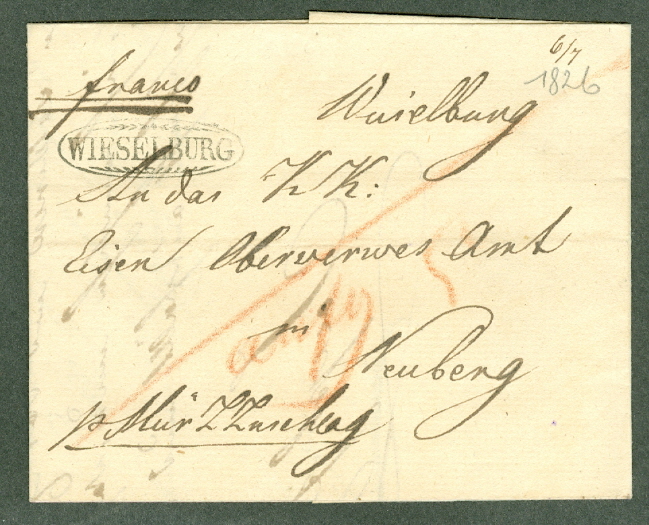 6/7
1826
franco
Wieselburg
WIESELBURG
An das K K:
Eisen Oberverwes Amt
in
Neuberg
p Mürzzuschlag